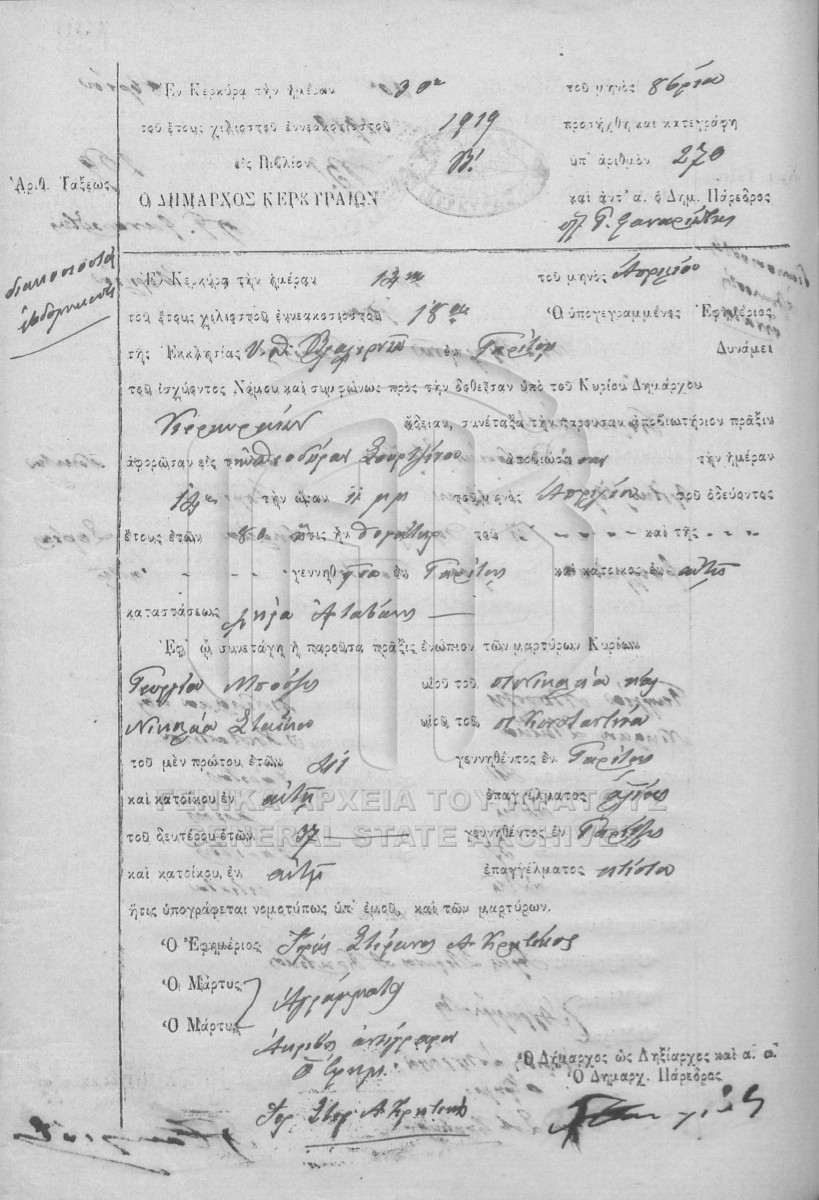 Ἐν Κερκύρᾳ τὴν ἡμέραν 30ην τοῦ μηνὸς 8βρίου
τοῦ ἔτους χιλιοστοῦ ἐννεακοσιοστοῦ 1919 προσήχθη καὶ κατεγράφη
εἰς Βιβλίον Β! ὑπ' ἀριθμὸν 270
Ἀριθ. Τάξεως
Ὁ ΔΗΜΑΡΧΟΣ ΚΕΡΚΥΡΑΙΩΝ καὶ ἀντ' α. ὁ Δημ. Πάρεδρος
διακοσιοστὴ
Ἐν Κερκύρᾳ τὴν ἡμέραν τοῦ μηνὸς Ἀπριλίου
τοῦ ἔτους χιλιοστοῦ ἐννεακοσιοστοῦ 18ου Ὁ ὑπογεγραμμένος Ἐφημέριος
τῆς Ἐκκλησίας ἐν Γαρίτσῃ Δυνάμει
τοῦ ἰσχύοντος Νόμου καὶ συμφώνως πρὸς τὴν δοθεῖσαν ὑπὸ τοῦ Κυρίου Δημάρχου
Κερκυραίων ἄδειαν, συνέταξα τὴν παροῦσαν ἀποβιωτήριον πρᾶξιν
ἀφορῶσαν εἰς τὴν Θεοδώραν ἀποβιώσασαν τὴν ἡμέραν
τὴν ὥραν 11 μμ τοῦ μηνὸς Ἀπριλίου τοῦ ὁδεύοντος
ἔτους ἐτῶν 80 ἥτις ἦν θυγάτηρ τοῦ - - - - καὶ τῆς - -
- - - - γεννηθεῖσα ἐν Γαρίτσῃ καὶ κάτοικος ἐν αὐτῇ
καταστάσεως χήρα
Ἐφ' ᾧ συνετάγη ἡ παροῦσα πρᾶξις ἐνώπιον τῶν μαρτύρων Κυρίων
Γεωργίου υἱοῦ τοῦ Νικολάου καὶ
Νικολάου υἱοῦ τοῦ Κωσταντίνου
τοῦ μὲν πρώτου ἐτῶν 41 γεννηθέντος ἐν Γαρίτσῃ
καὶ κατοίκου ἐν αὐτῇ ἐπαγγέλματος
ΓΕΝΙΚΑ ΑΡΧΕΙΑ ΤΟΥ ΚΡΑΤΟΥΣ
τοῦ δευτέρου ἐτῶν 37 γεννηθέντος ἐν Γαρίτσῃ
GENERAL STATE ARCHIVES
καὶ κατοίκου ἐν αὐτῇ ἐπαγγέλματος κτίστου
ἥτις ὑπογράφεται νομοτύπως ὑπ' ἐμοῦ, καὶ τῶν μαρτύρων.
Ὁ Ἐφημέριος Ἱερεὺς Στέφανος Α Κρητικός
Ὁ Μάρτυς
Ἀγράμματοι
Ὁ Μάρτυς
Ἀκριβὲς ἀντίγραφον
Ὁ Ἐφημ.
Ὁ Δήμαρχος ὡς Ληξίαρχος καὶ α. α.
Ὁ Δημαρχ. Πάρεδρος
Ἱερ Στεφ Α Κρητικός